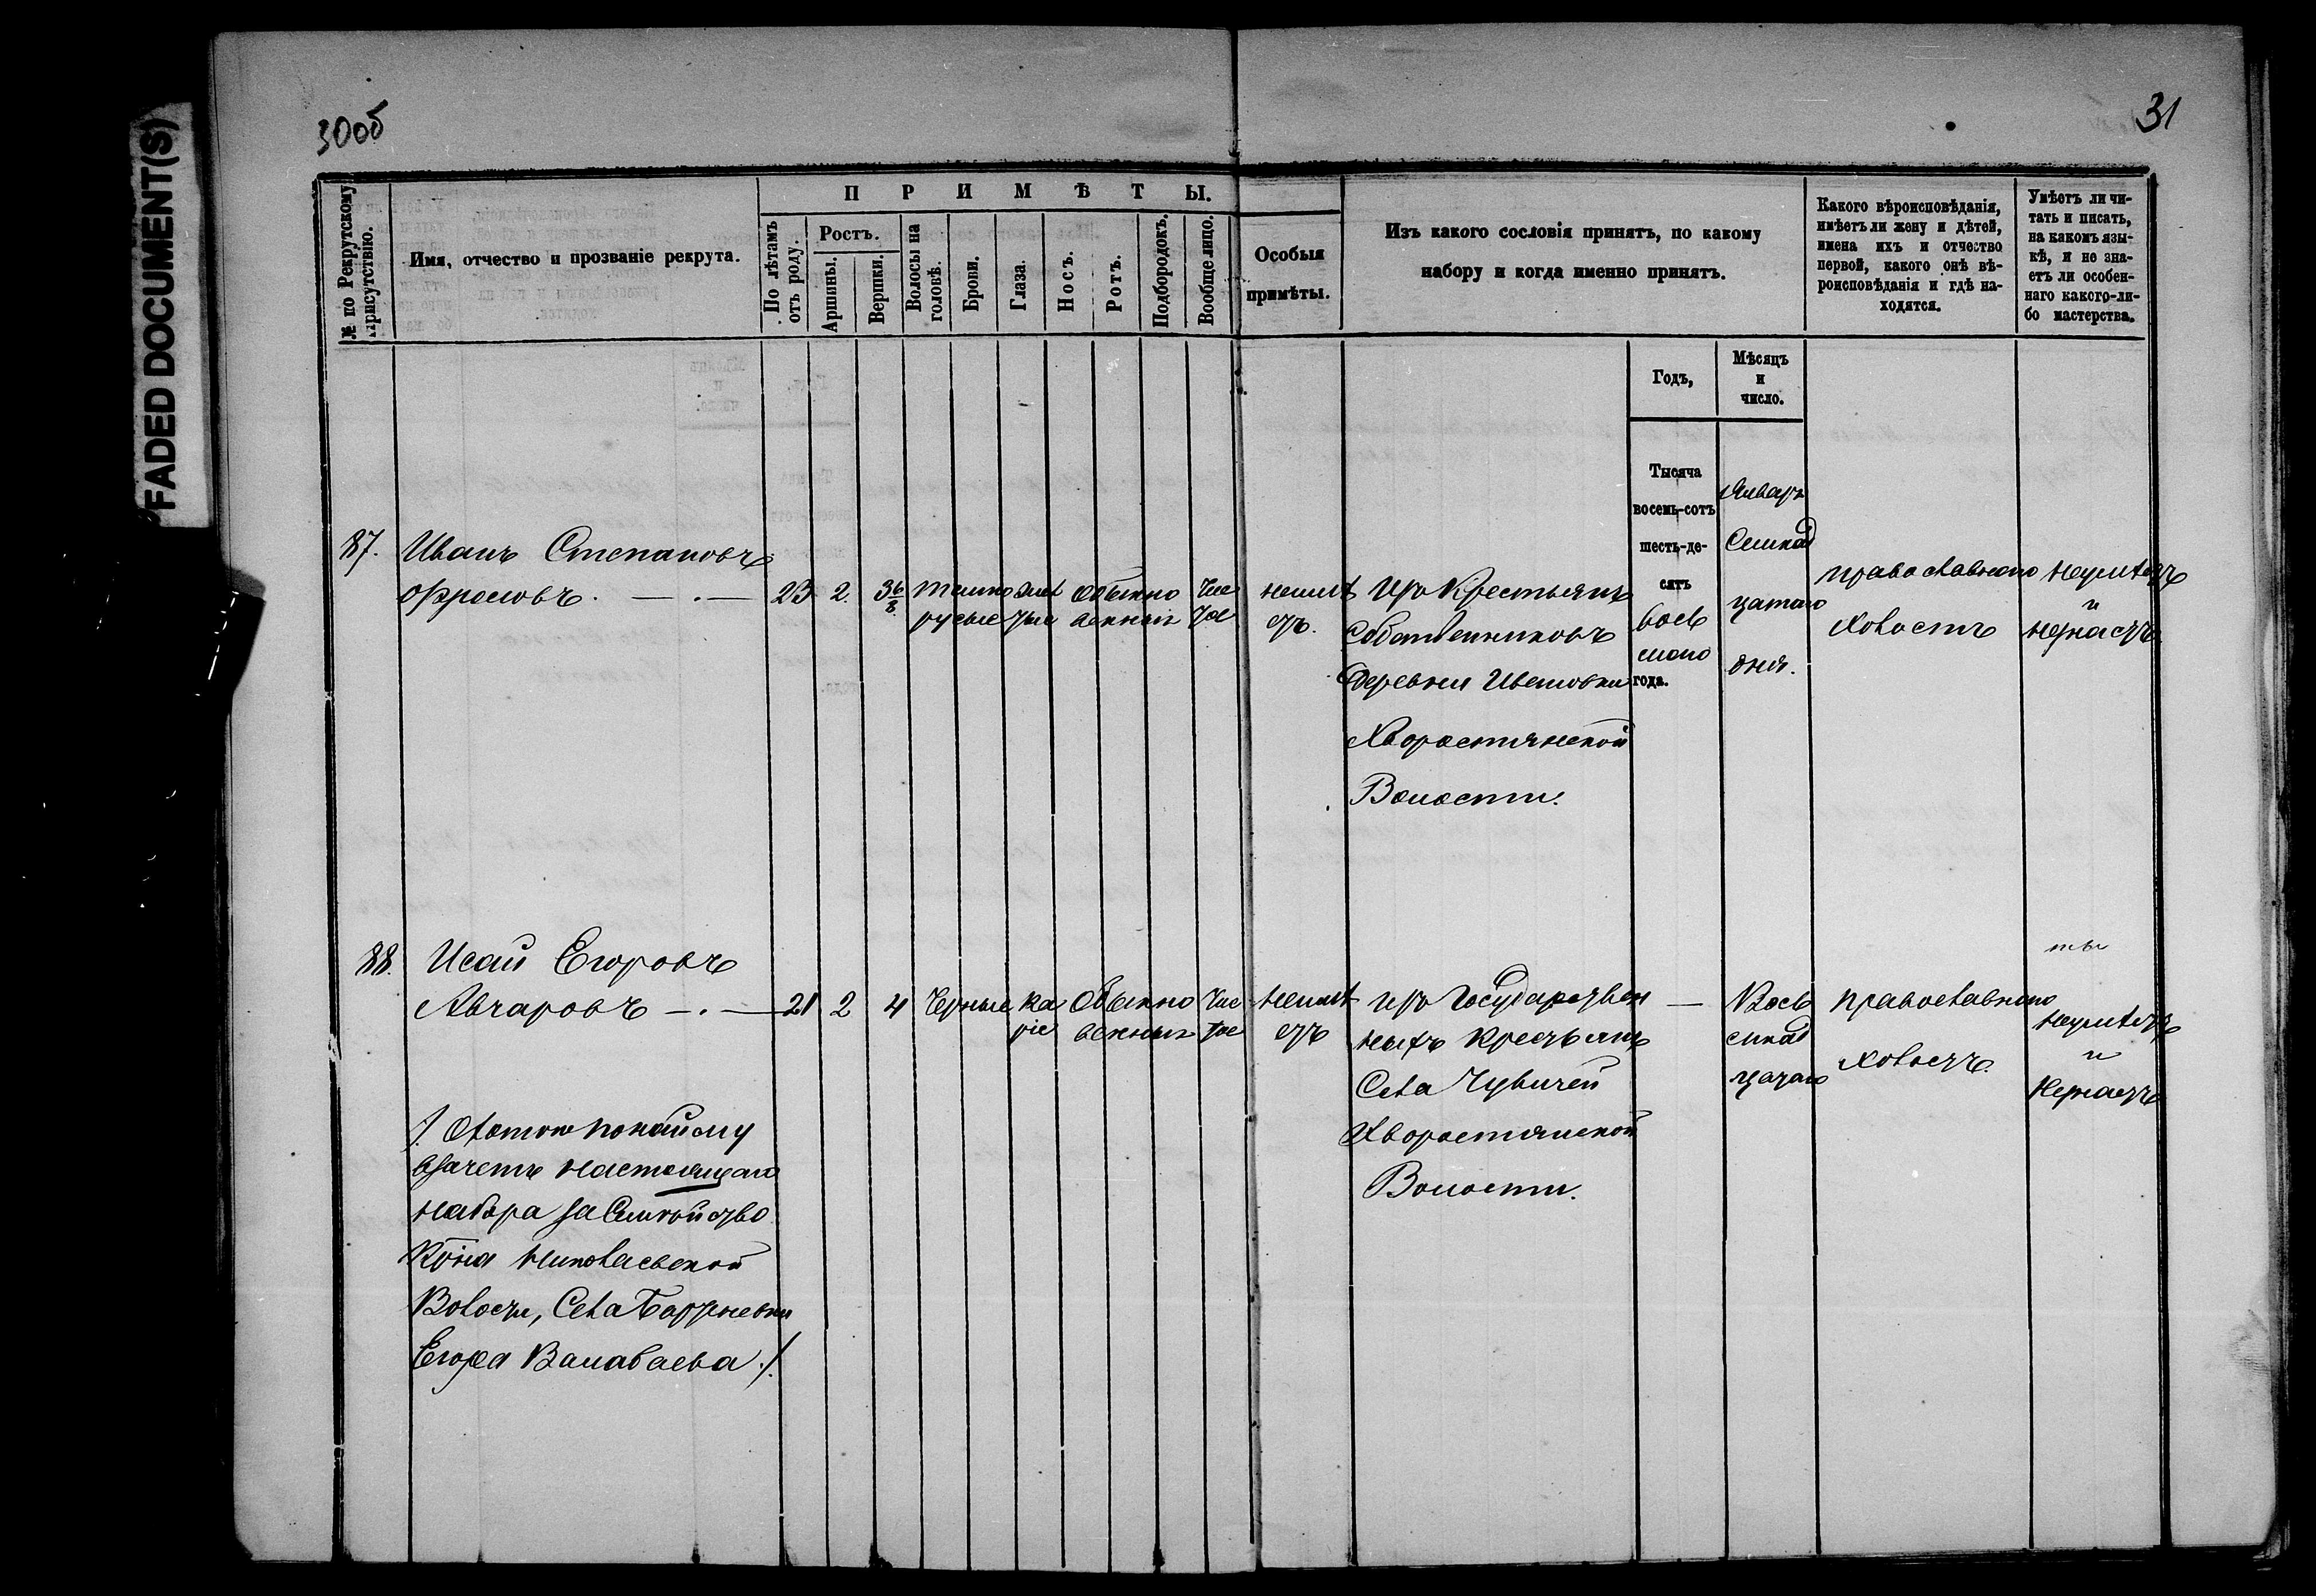 FADED DOCUMENT(S)
30об
31
№ по Рекрутскому присутствію.
Имя, отчество и прозваніе рекрута.
ПРИМѢТЫ.
По лѣтамъ отъ роду.
Ростъ.
Аршины.
Вершки.
Волосы на головѣ.
Брови.
Глаза.
Носъ.
Ротъ.
Подбородокъ.
Вообще лицо.
Особыя
примѣты.
Изъ какого сословія принятъ, по какому
набору и когда именно принятъ.
Какого вѣроисповѣданія,
имѣетъ ли жену и дѣтей,
имена ихъ и отчество
первой, какого онѣ вѣ-
роисповѣданія и гдѣ на-
ходятся.
Умѣетъ ли чи-
тать и писать,
на какомъ язы-
кѣ, и не зна-
етъ ли особен-
наго какого-ли-
бо мастерства.
Годъ,
Мѣсяцъ
и
число.
87.
Иванъ Степановъ
Фроловъ. — . —
23
2.
3 6/8
темно
русые
Обыкно
венный
Чис
тое
неимѣ
етъ.
Изъ Крестьянъ
Собственниковъ
Деревни
Хворостянской
Волости.
Тысяча
восемь-сотъ
шесть-де-
сятъ
вось
мого
года.
Январь
Семнад
цатаго
дня.
православного
Холостъ
неумѣетъ
и
незнаетъ
88.
Исай Егоровъ
Авчаровъ — . —
21
2
4
Черные
ка
ріе
Обыкно
венный
Чис
тое
неимѣ
етъ
изъ Государствен
ныхъ Крестьянъ
Села
Хворостянской
Волости.
—
Вось
мнад
цатаго
православного
холостъ.
неумѣетъ
и
Незнаетъ
взачетъ настоящаго
набора за Семейство
Николаевской
Волости, Села
Егора Валабаева ./.